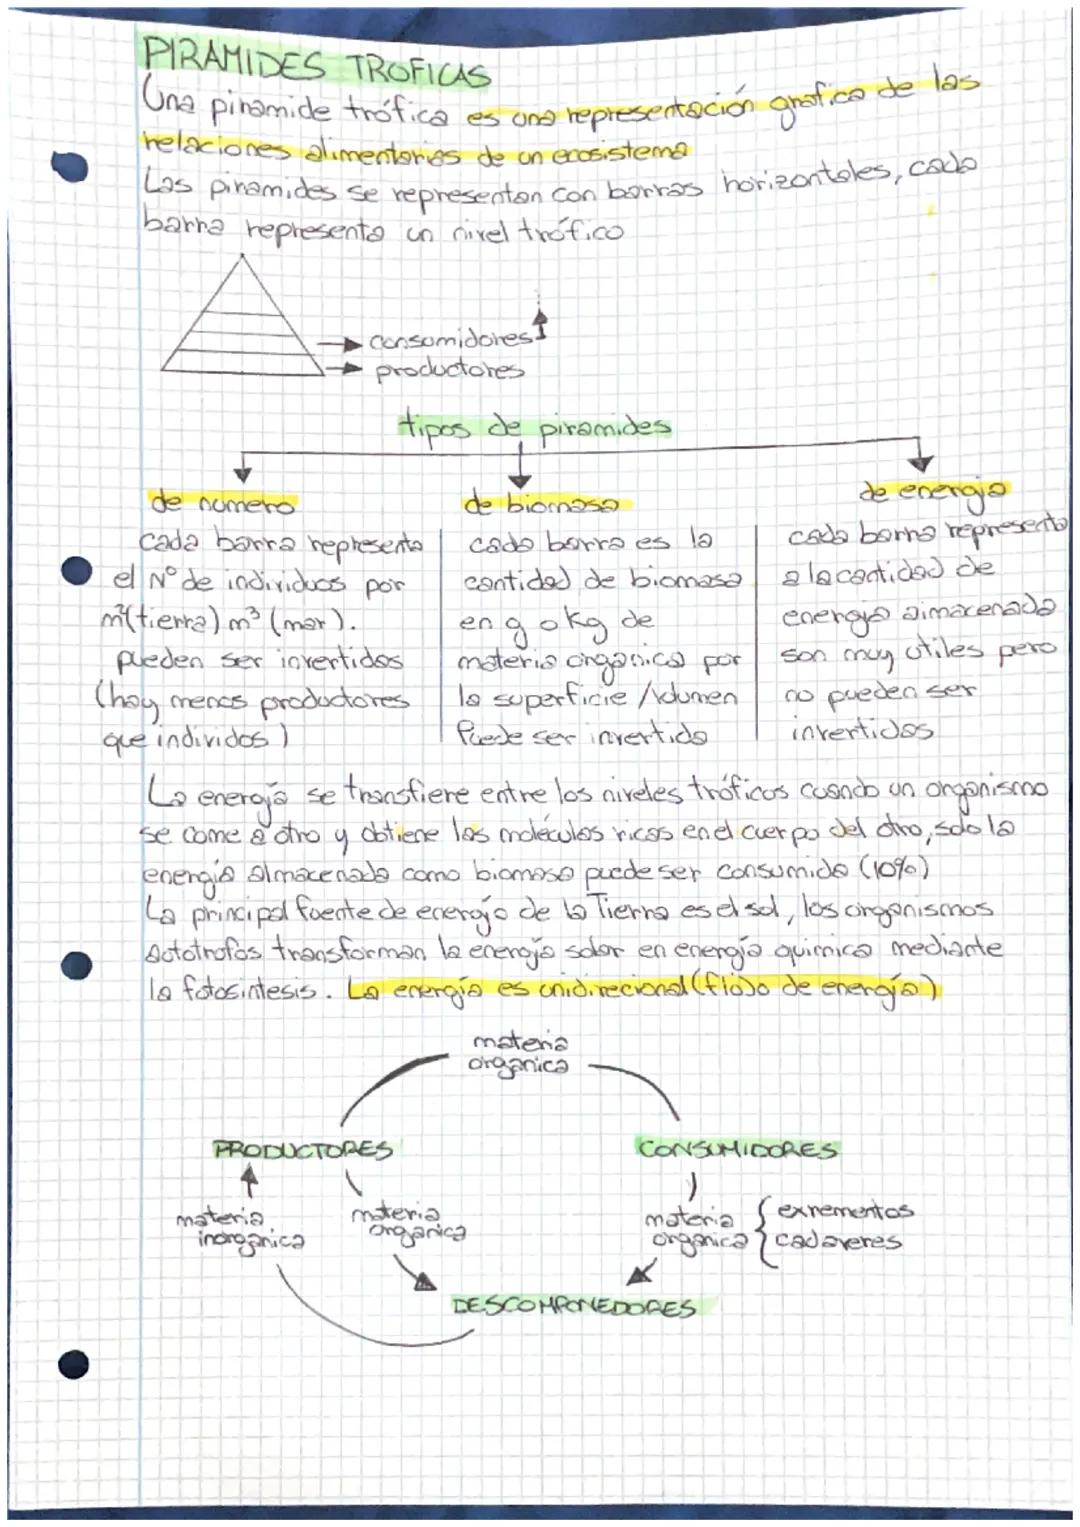 PIRAMIDES TROFICAS
Una piramide trófica es una representación grafica de las
relaciones alimentarias de un ecosistema
Las piramides se representan con barras horizontales, cada
barra representa un nivel trófico
consumidores
productores
tipos de piramides
de numero
cada barra representa
el Nº de individuos por
m²(tierra) m³ (mar).
pueden ser invertidas
(hay menos productores
que individos)
de biomasa
cada barra es la
cantidad de biomasa
en g o kg de
materia organica por
la superficie /volumen
Puede ser invertida
de energia
cada barra representa
a la cantidad de
energia almacenada
son muy utiles pero
no pueden ser
invertidas
La energía se transfiere entre los niveles tróficos cuando un organismo
se come a otro y obtiene las moléculas ricas en el cuerpo del otro, solo la
energia almacenada como biomasa puede ser consumida (10%)
La principal fuente de energía de la Tierra es el sol, los organismos
autotrofos transforman la energía solar en energía quimica mediante
la fotosintesis. La energía es unidirecional (flujo de energía)
materia
organica
PRODUCTORES
CONSUMIDORES
materia
inorganica
materia
organica
materia
organica
exrementos
cadaveres
DESCOMPONEDORES